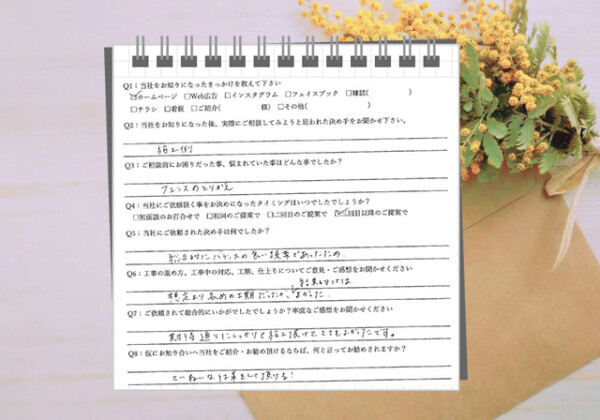 Q1：当社をお知りになったきっかけを教えて下さい
☑ホームページ □Web広告 □インスタグラム □フェイスブック □雑誌( )
□チラシ □看板 □ご紹介( 様) □その他( )
Q2：当社をお知りになった後、実際にご相談してみようと思われた決め手をお聞かせ下さい。
施工例
Q3：ご相談前にお困りだった事、悩まれていた事はどんな事でしたか？
フェンスのとりかえ
Q4：当社にご依頼頂く事をお決めになったタイミングはいつでしたでしょうか？
□初面談のお打合せで □初回のご提案で □二回目のご提案で ☑三回目以降のご提案で
Q5：当社にご依頼された決め手は何でしたか？
総合的にバランスの良い提案であったため。
Q6：工事の進め方、工事中の対応、工期、仕上りについてご意見・ご感想をお聞かせください
結果的には
想定より長めの工期だったが、よかった。
Q7：ご依頼されて総合的にいかがでしたでしょうか？率直なご感想をお聞かせください
期待通りにしっかりと施工頂けてとてもよかったです。
Q8：仮にお知り合いへ当社をご紹介・お勧め頂けるならば、何と言ってお勧めされますか？
ていねいな仕事をして頂ける！